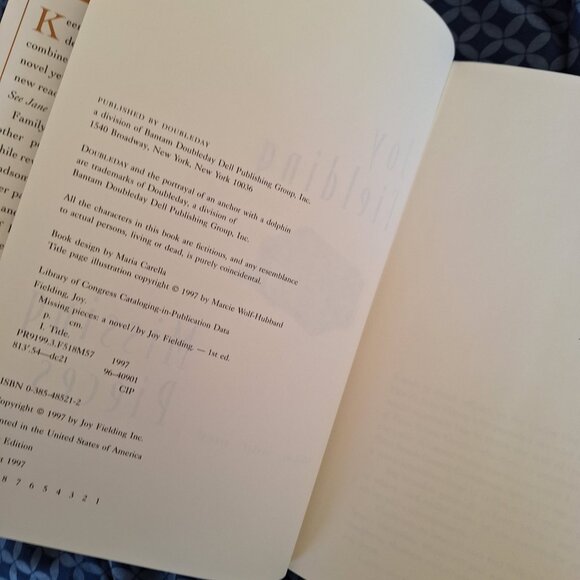 K
een
de
combine
novel ye
new read
See Jane
Family
other p
while re
ndsom
er pa
and
PUBLISHED BY DOUBLEDAY
a division of Bantam Doubleday Dell Publishing Group, Inc.
1540 Broadway, New York, New York 10036
DOUBLEDAY and the portrayal of an anchor with a dolphin
are trademarks of Doubleday, a division of
Bantam Doubleday Dell Publishing Group, Inc.
All the characters in this book are fictitious, and any resemblance
to actual persons, living or dead, is purely coincidental.
Book design by Maria Carella
Title page illustration copyright © 1997 by Marcie Wolf-Hubbard
Library of Congress Cataloging-in-Publication Data
Fielding, Joy.
Missing pieces: a novel / by Joy Fielding. — 1st ed.
p. cm.
I. Title.
PR9199.3.F518M57 1997
813'.54—dc21 96-40901
CIP
ISBN 0-385-48521-2
Copyright © 1997 by Joy Fielding Inc.
inted in the United States of America
Edition
t 1997
8 7 6 5 4 3 2 1
Joy
Fielding
Missing
Pieces